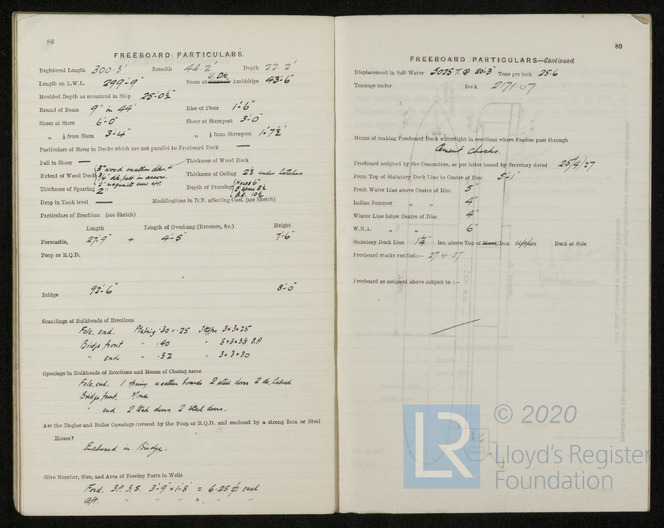 88
FREEBOARD PARTICULARS.
Registered Length 300·3' Breadth 44·2' Depth 22·2'
Length on L.W.L. 299'-9" Beam at U.DK. Amidships 43'-6"
Moulded Depth as measured in Ship 25'-0½"
Round of Beam 9" in 44' Rise of Floor 1'-6"
Sheer at Stem 6'-0" Sheer at Sternpost 3'-0"
" ⅛ from Stem 3'-4" " ⅛ from Sternpost 1'-7½"
Particulars of Sheer in Decks which are not parallel to Freeboard Deck —
Fall in Sheer — Thickness of Wood Deck
Extent of Wood Deck Thickness of Ceiling 2½ under hatches
Thickness of Sparring 2" Depth of Framing
Drop in Tank level — Modifications in D.B. affecting Coef. (see Sketch)
Particulars of Erections (see Sketch)
Length Length of Overhang (Recesses, &c.) Height
Forecastle, 27'-9" + 4'-5" 7'-6"
Poop or R.Q.D.
Bridge 92'-6" 8'-0"
Scantlings of Bulkheads of Erections
Fcle. end. Plating ·30 & ·25 Stiffrs 3×3×25
Bridge front " ·40 "
" end " ·32 " 3×3×30
Openings in Bulkheads of Erections and Means of Closing same
Fcle. end. 1 opening weather boards 2 steel doors
Bridge front. None
" end 2 steel doors.
Are the Engine and Boiler Openings covered by the Poop or R.Q.D. and enclosed by a strong Iron or Steel
House?
Enclosed in Bridge.
Give Number, Size, and Area of Freeing Ports in Wells
Ford. 3P. 3.S. 3'-9" × 1'-8" = 6·25 each
Aft. " " " = " "
89
FREEBOARD PARTICULARS—Continued.
Displacement in Salt Water 5025 T. @ 20·3" Tons per inch 25·6
Tonnage under Deck 2171·07
Means of making Freeboard Deck watertight in erections where Frames pass through
Cement Chocks.
Freeboard assigned by the Committee, as per letter issued by Secretary dated 25/4/27
From Top of Statutory Deck Line to Centre of Disc 5'-1"
Fresh Water Line above Centre of Disc 5"
Indian Summer " " 4"
Winter Line below Centre of Disc 4"
W.N.A. " " 6"
Statutory Deck Line ins. above Top of Wood Iron Upper Deck at Side
Freeboard marks verified:— 27·4·27
Freeboard as assigned above subject to :—
© 2020
LR
Lloyd's Register
Foundation